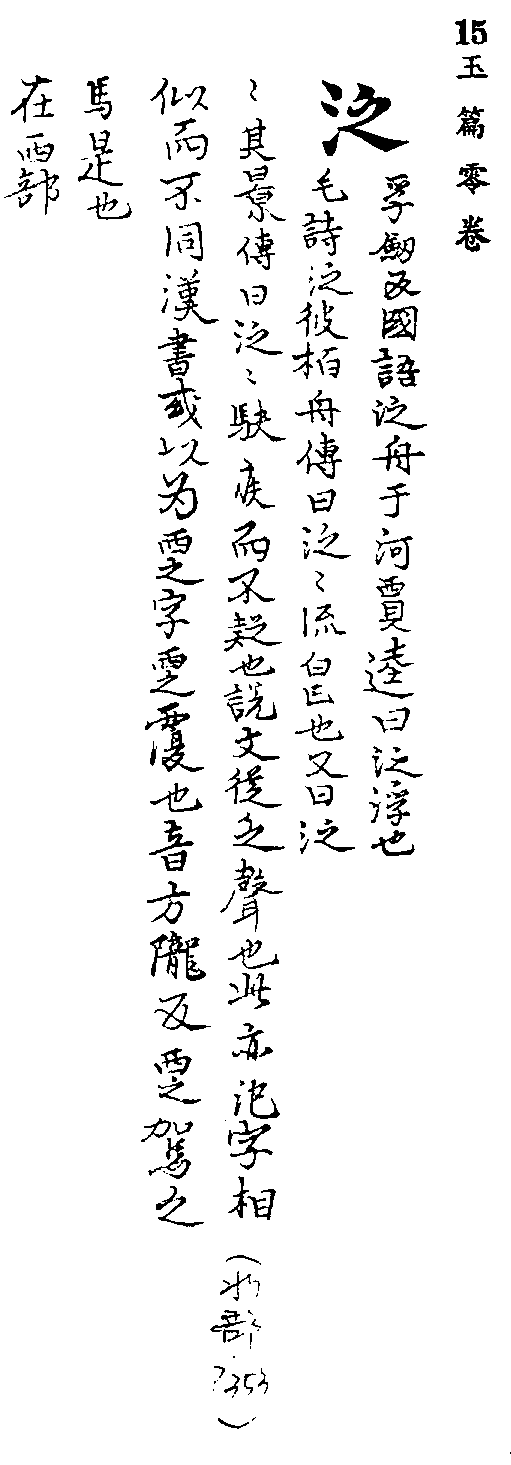 15玉篇零卷
泛
孚劒反國語泛舟于河賈逵曰泛浮也
毛詩泛彼栢舟傳曰泛〻流皃也又曰泛
〻其景傳曰泛〻駃疾而不疑也說文從乏聲也此亦氾字相
似而不同漢書或以为覂字覂覆也音方隴反覂駕之
馬是也
在西部
(水部 P353)